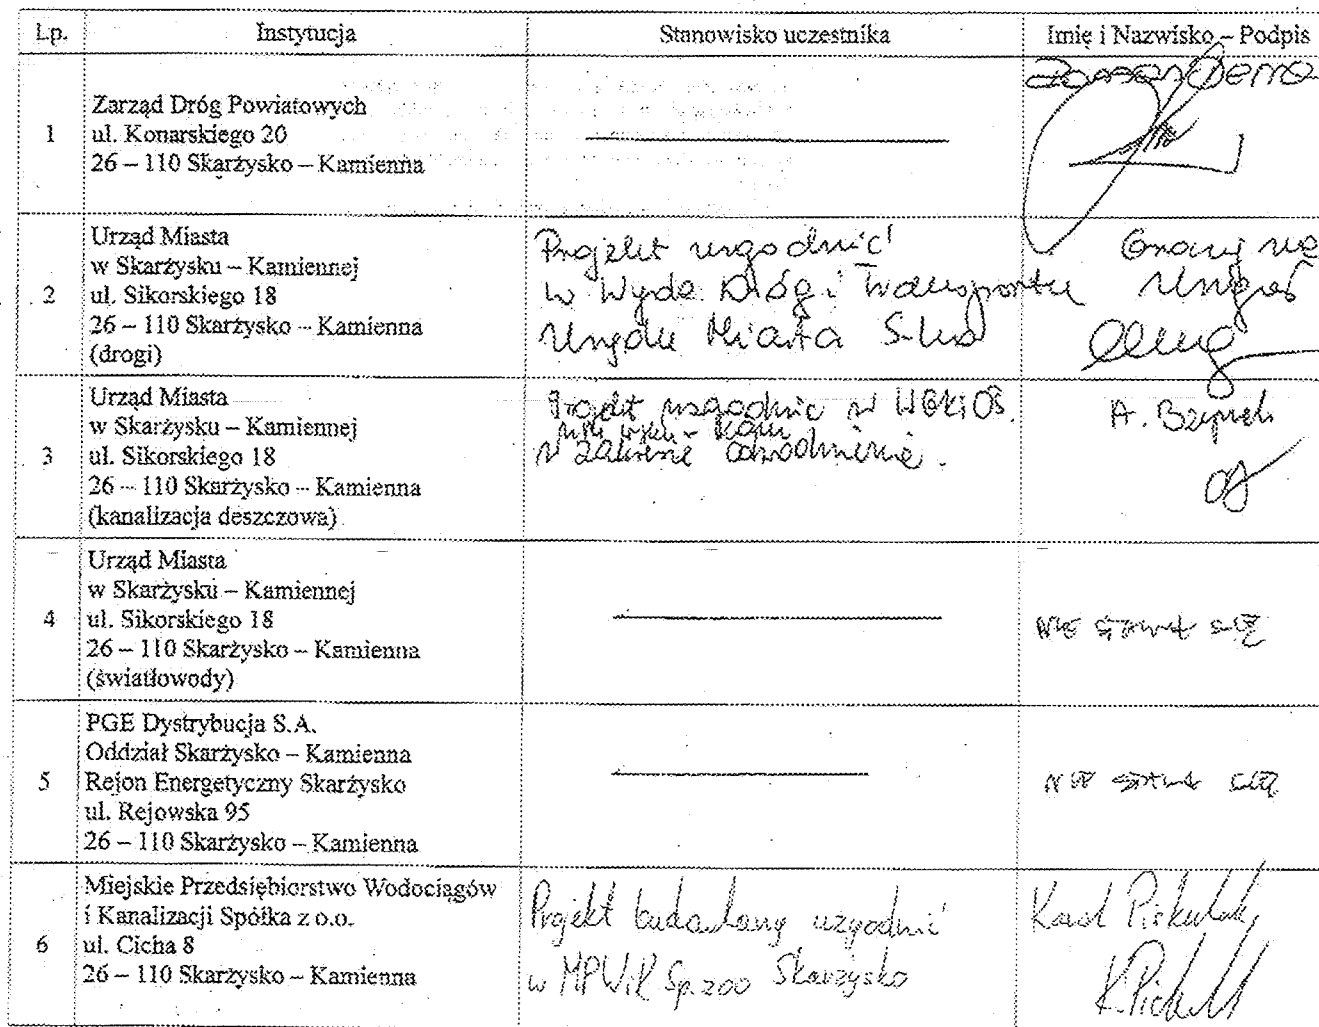 Lp. Instytucja Stanowisko uczestnika Imię i Nazwisko – Podpis
1
Zarząd Dróg Powiatowych
ul. Konarskiego 20
26 – 110 Skarżysko – Kamienna
2
Urząd Miasta
w Skarżysku – Kamiennej
ul. Sikorskiego 18
26 – 110 Skarżysko – Kamienna
(drogi)
Projekt uzgodnić
w Wydz. Dróg i Transportu
Urzędu Miasta
3
Urząd Miasta
w Skarżysku – Kamiennej
ul. Sikorskiego 18
26 – 110 Skarżysko – Kamienna
(kanalizacja deszczowa)
Projekt uzgodnić w WGKiOŚ
w zakresie odwodnienia.
A.
4
Urząd Miasta
w Skarżysku – Kamiennej
ul. Sikorskiego 18
26 – 110 Skarżysko – Kamienna
(światłowody)
NIE STAWIŁ SIĘ
5
PGE Dystrybucja S.A.
Oddział Skarżysko – Kamienna
Rejon Energetyczny Skarżysko
ul. Rejowska 95
26 – 110 Skarżysko – Kamienna
NIE STAWIŁ SIĘ
6
Miejskie Przedsiębiorstwo Wodociągów
i Kanalizacji Spółka z o.o.
ul. Cicha 8
26 – 110 Skarżysko – Kamienna
Projekt budowlany uzgodnić
w MPWiK Sp. zoo Skarżysko